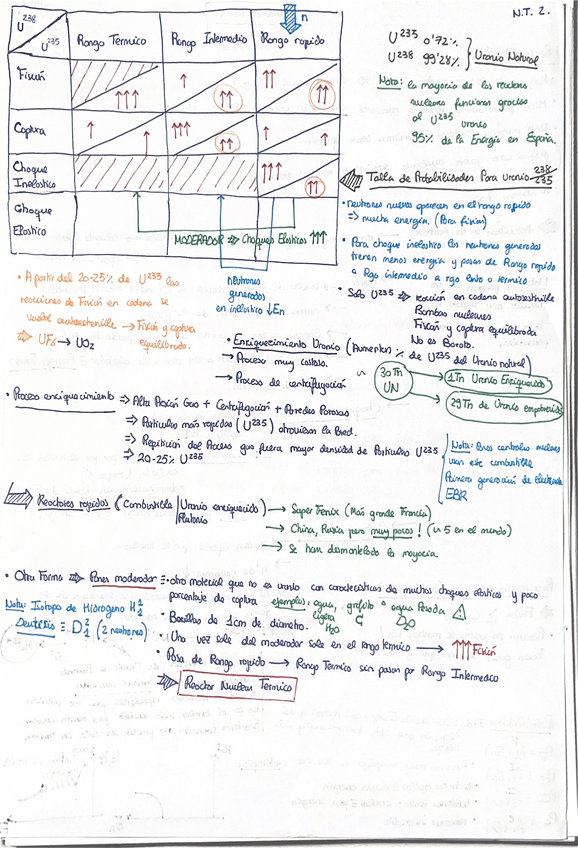 N.T. 2.
U238
U235
Rango Termico
Rango Intermedio
Rango rapido
n
Fisión
↑↑↑
↑
↑↑
↑↑
↑↑
Captura
↑
↑
↑↑↑
↑↑
↑
↑
Choque
Inelastico
↑↑↑
↑↑
Choque
Elastico
MODERADOR ⇒ Choques Elasticos ↑↑↑
neutrones
generados
en inelastico ↓En
U235 0'72%
U238 99'28%
Uranio Natural
Nota: la mayoria de los reactores
nucleares funcionan gracias
al U235 uranio
95% de la Energía en España.
Talla de Probabilidades Para Uranio 238/235
• neutrones nuevos aparecen en el rango rapido
⇒ mucha energía. (Para fisión)
• Para choque inelastico los neutrones generados
tienen menos energía y pasas de Rango rapido
a Rgo intermedio a rgo lento o termico
• Solo U235 ⇒ reacción en cadena autosostenible
Bombas nucleares
Fisión y captura equilibrada
No es Barato.
• A partir del 20-25% de U235 las
reacciones de Fisión en cadena se
vuelve autosostenible → Fisión y captura
equilibrado.
⇒ UF6 → UO2
• Enriquecimiento Uranio (Aumentar % de U235 del Uranio natural)
→ Proceso muy costoso.
→ Proceso de centrifugación
30 Tn
UN
1 Tn Uranio Enriquecido
29 Tn de Uranio empobrecido
• Proceso enriquecimiento ⇒ Alta Presión Gas + Centrifugación + Paredes Porosas
⇒ Particulas más rapidas (U235) atraviesan la Pared.
⇒ Repetición del Proceso gas fuera mayor densidad de Particulas U235
⇒ 20-25% U235
Nota: Pocas centrales nucleares
usan este combustible
Primera generación de electricidad
EBR
Reactores rapidos (Combustible | Uranio enriquecido)
Plutonio
→ Super Fenix (Más grande Francia)
→ China, Rusia pero muy pocos! (≈ 5 en el mundo)
→ Se han desmantelado la mayoria.
• Otra Forma ⇒ Poner moderador ≡ otro material que no es uranio con caracteristicas de muchos choques elasticos y poco
porcentaje de captura. ejemplos: agua, grafito o agua Pesada
ligera C D2O
H2O
Nota: Isotopo de Hidrogeno H
Deuterio ≡ D (2 neutrones)
• Barillas de 1 cm de diametro.
• Una vez sale del moderador sale en el rango termico → ↑↑↑ Fisión
• Pasa de Rango rapido → Rango Termico sin pasar por Rango Intermedio
⇒ Reactor Nuclear Termico